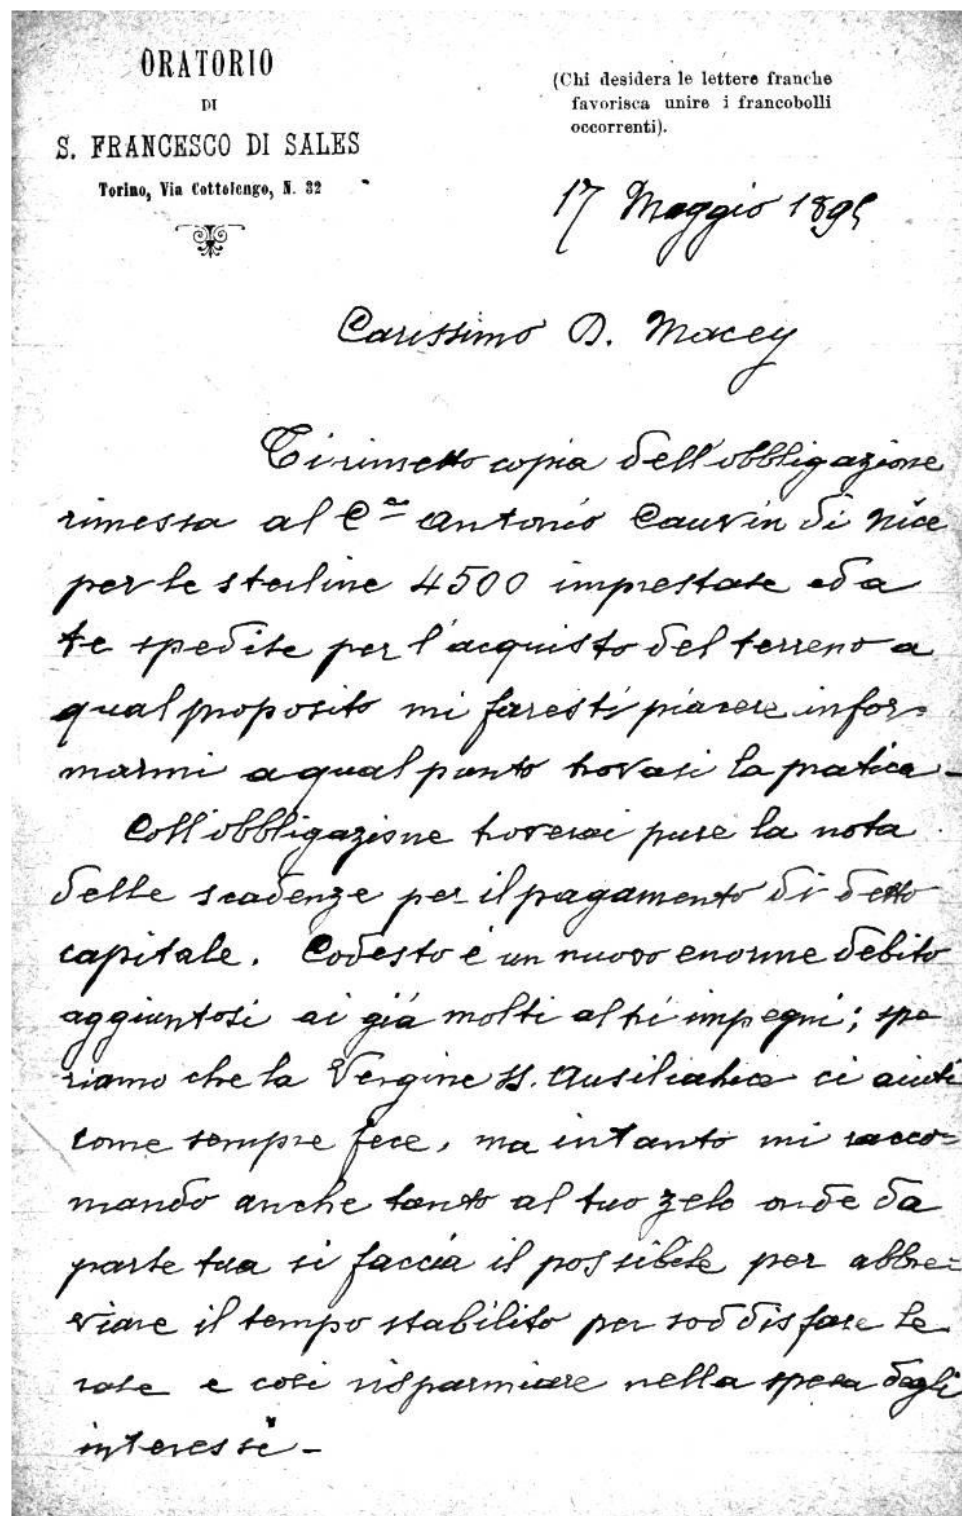 ORATORIO
DI
S. FRANCESCO DI SALES
Torino, Via Cottolengo, N. 32
(Chi desidera le lettere franche
favorisca unire i francobolli
occorrenti).
17 Maggio 1895
Carissimo D. Macey
Ti rimetto copia dell'obbligazione
rimessa al Cᵉ Antonio Cauvin di Nice
per le sterline 4500 imprestate e da
te spedite per l'acquisto del terreno a
qual proposito mi faresti piacere infor=
marmi a qual punto trovasi la pratica -
Coll'obbligazione troverai pure la nota
delle scadenze per il pagamento di detto
capitale. Codesto è un nuovo enorme debito
aggiuntosi ai già molti altri impegni; spe
riamo che la Vergine SS. Ausiliatrice ci aiuti
come sempre fece, ma intanto mi racco=
mando anche tanto al tuo zelo onde da
parte tua si faccia il possibile per abbre=
viare il tempo stabilito per soddisfare le
rate e così risparmiare nella spesa degli
interessi -